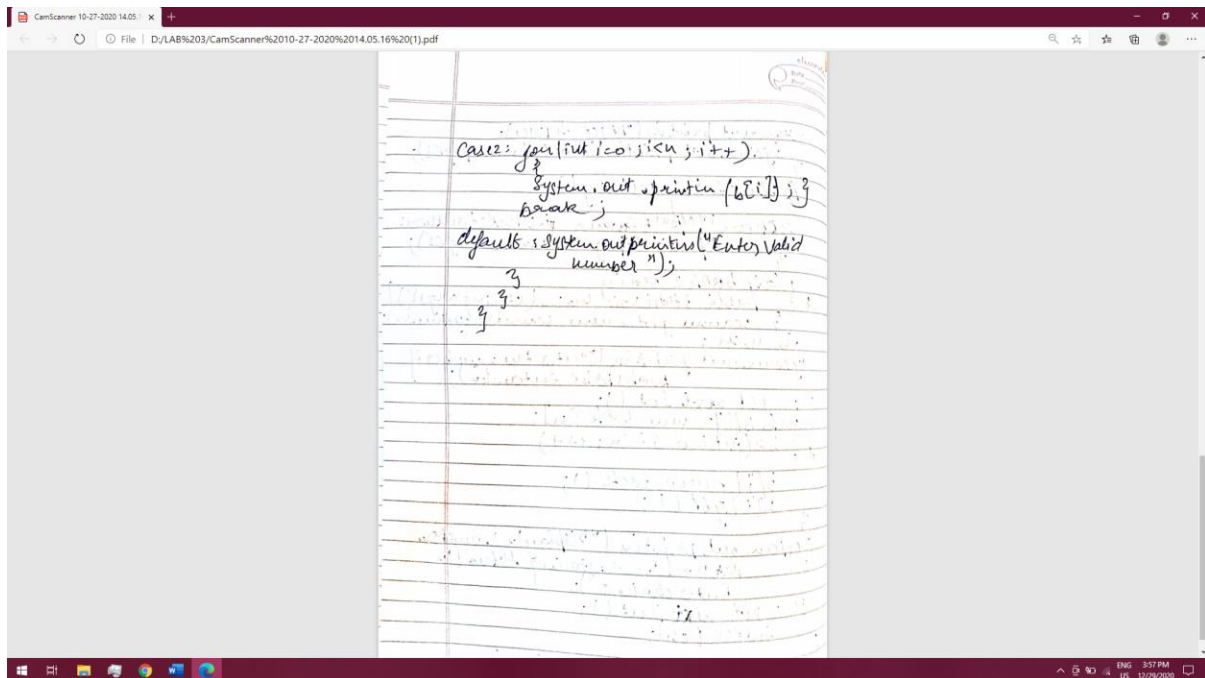 CamScanner 10-27-2020 14.05.1
File | D:/LAB%203/CamScanner%2010-27-2020%2014.05.16%20(1).pdf
Date
Page
case2: for(int i=0; i<n; i++)
{
System.out.println (b[i]); }
break;
default: System.out println("Enter Valid
number");
}
}
}
ENG 3:57 PM
US 12/29/2020